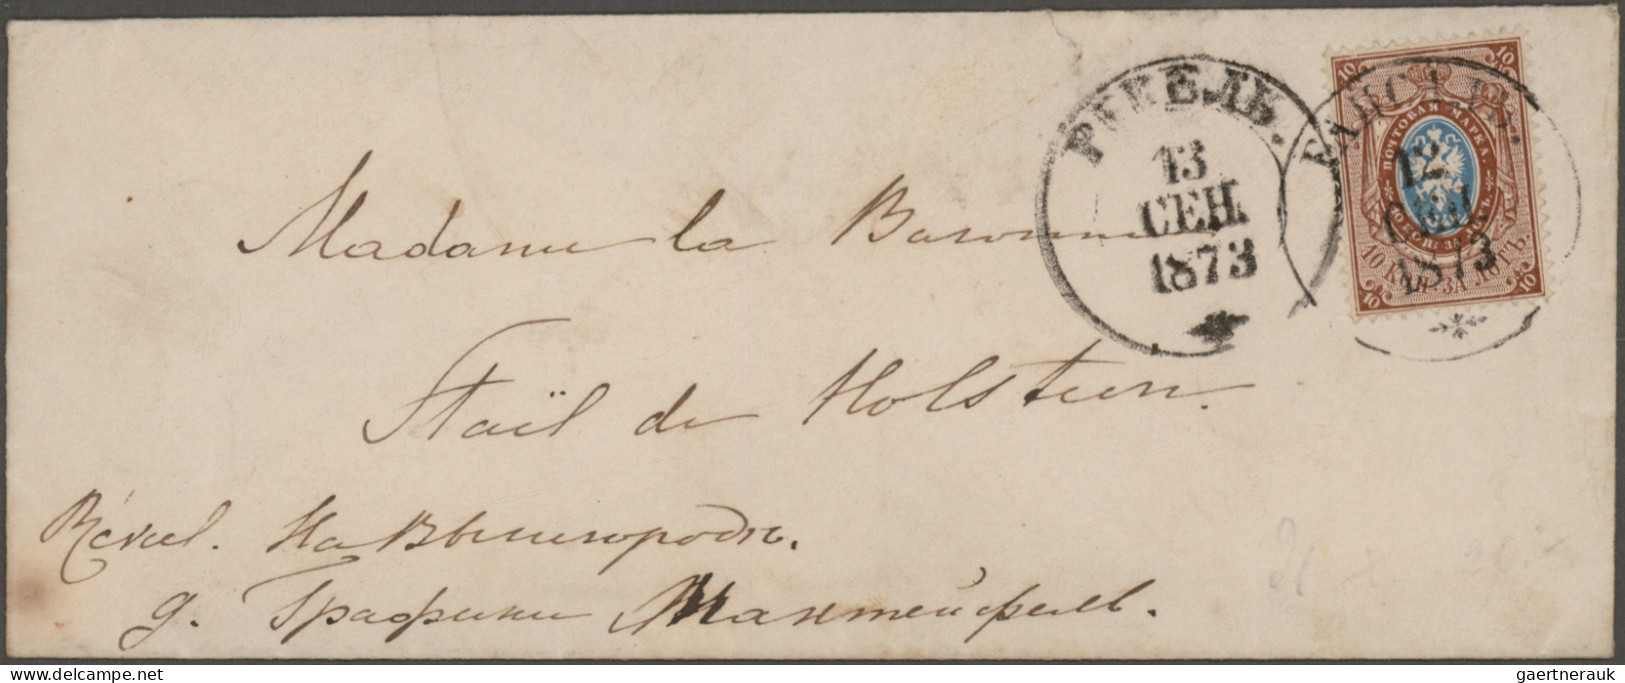 РЕВЕЛЬ.
13
СЕН.
1873
ГАПСАЛЬ.
12
СЕН.
1873
10
10
ПОЧТОВАЯ МАРКА
10 КОП. ЗА ЛОТЪ.
10
10
Madame la Baronne
Staël de Holstein.
Réval. На Вышгородѣ.
д. Графини Мантейфель.
gaertnerauk